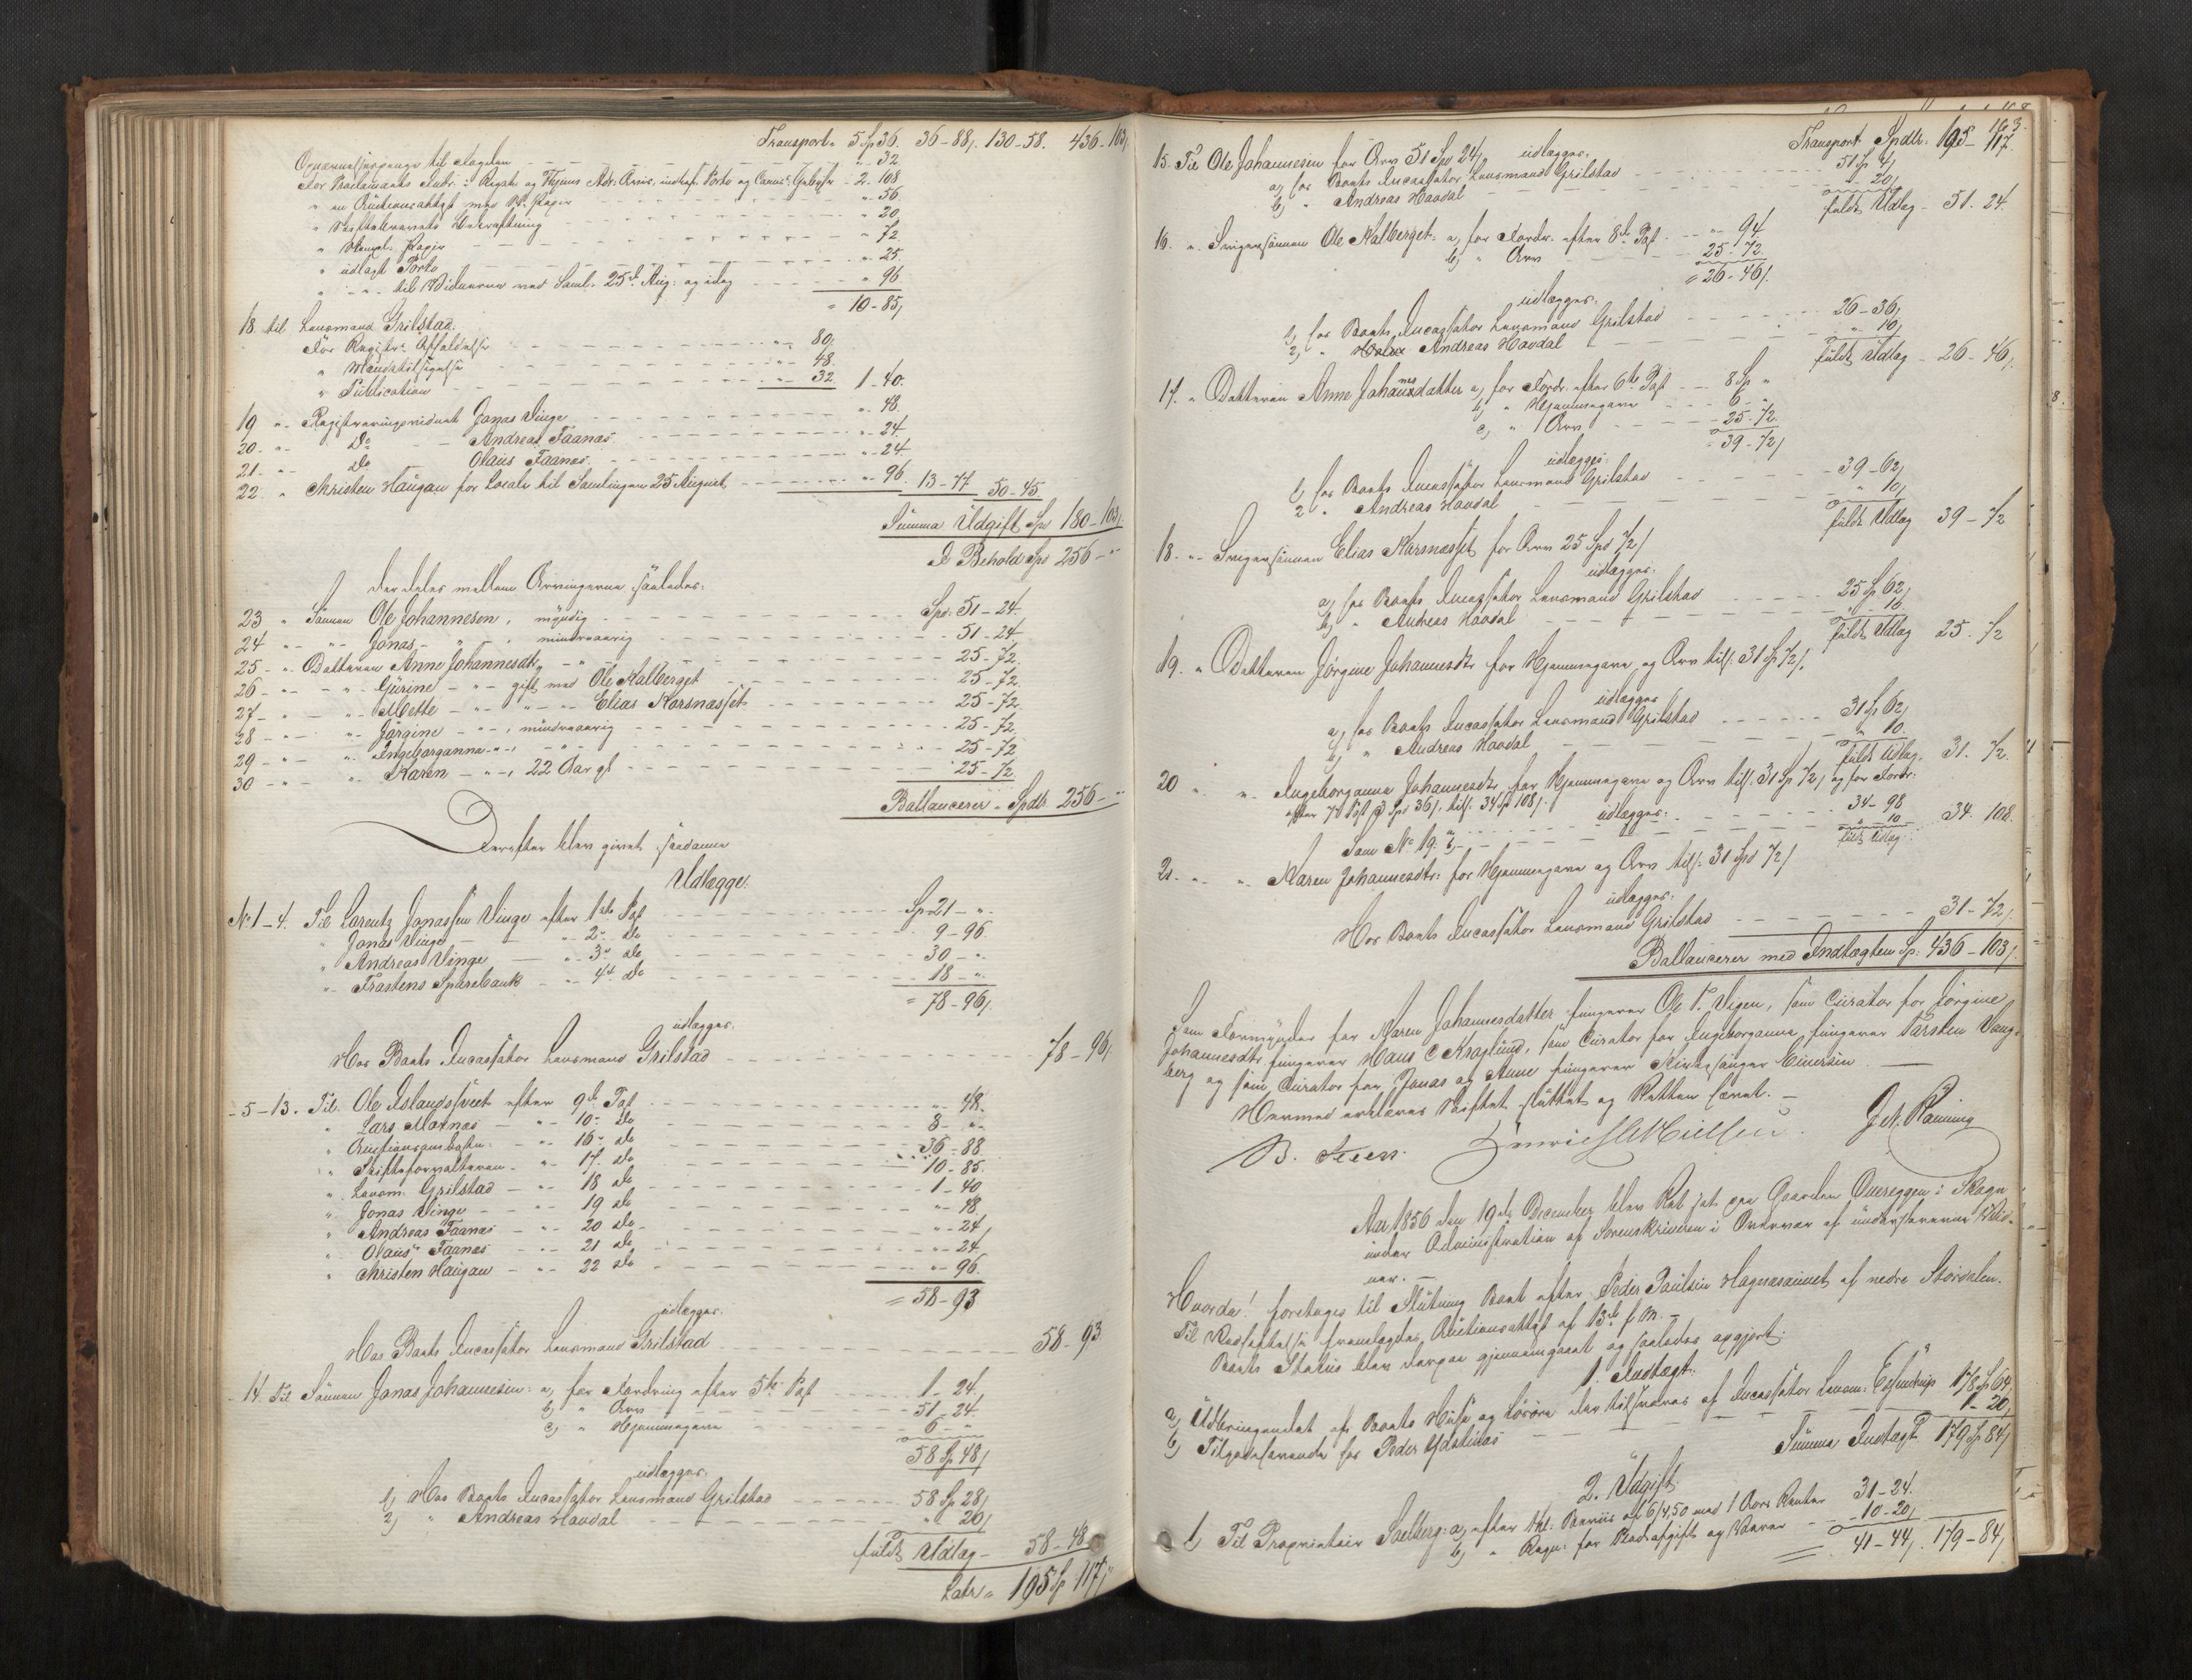 Transport. 5 Sp 36. 36-88/. 130-58. 436-103/.
til Dagden - - - „- 32
For Proclamaets Indr: i Rigst. og Adr. Avis, indbef. Porto og 2- 108
" en Auctionsattest med St. Papir - - - „- 56
" Skiftebrevets Bekræftning - - - „- 20
" Stempl. Papir - - - „- 72
" udlagt Porto - - - „- 25
" - „- til Vidnerne ved Saml. 25de Aug: og idag - - - „- 96
= 10-85/
18 til Lensmand Grilstad:
For Registr: Afholdelse - - - „- 80
" Mandstilsigelse - - - „- 48
" Publication - - - „- 32 1-40.
19 „- Registreringsvidnet Jonas Vinge - - - „- 48
20. „- Do Andreas Faanæs - - - „- 24
21- „- Do Olaus Faanæs - - - „- 24
22 „ Christen Haugan for Locale til Samlingen 25 August - - - „- 96 13-77 50-45
Summa Udgift Sp 180-103/.
I Behold Spd 256- „
der deles mellem Arvingerne saaledes:
23 „ Sønnen Ole Johannesen, myndig - - - Spd: 51-24.
24 „- „- Jonas - „- mindreaarig - - - 51-24
25- „- Datteren Anne Johannesdtr „- - - - 25-72.
26- „- „- Gurine - „- gift med Ole Kalberget - - - 25-72.
27- „- „- Mette - „- „- Elias Korsnæsset - - - 25-72
28- „- „- Jørgine - „-, mindreaarig - - - 25-72
29- „- „- Ingeborganna - „- - - - 25-72
30- „- „- Karen - „-, 22 Aar gl - - - 25-72
Ballancerer - Spdlr 256- „
Derefter blev givet saadanne
Udlægge:
No 1-4. Til Lorentz Jonassen Vinge efter 1ste Post - - - Sp 21- „
" Jonas Vinge - „- 2- do - - - 9-96
" Andreas Vinge - „- 3- do - - - 30- „
" Frostens Sparebank - „- 4de do - - - 18- „
= 78-96/
udlægges.
Hos Boets Incassator Lensmand Grilstad - - - 78-96/
- 5-13. Til Ole Islandsveet efter 9de Post - - - „- 48.
" Lars Moxnæs - „- 10- do - - - 8- „
" Auctionsomkostn: - „- 16- do - - - 36-88
" Skifteforvalteren - „- 17- do - - - 10-85.
" Lensm. Grilstad - „- 18 do - - - 1-40
" Jonas Vinge - „- 19 do - - - „- 48
" Andreas Faanæs - „- 20 do - - - „- 24
" Olaus Faanæs - „- 21 do - - - „- 24
" Christen Haugan - „- 22 do - - - „- 96
= 58-93
udlægges.
Hos Boets Incassator Lensmand Grilstad - - - 58-93
- 14. Til Sønnen Jonas Johannesen: a, for Fordring efter 5te Post - - - 1-24.
b) " Arv - - - 51-24
c) " Hjemmegave - - - 6- „
58 Sp 48/
udlægges.
1) Hos Boets Incassator Lensmand Grilstad - - - 58 Sp 28/
2) " Andreas Havdal - - - „ 20/
fuldt Udlæg - 58-48
Latr. 195 Sp 117/
163.
Transport Spdlr. 195-117.
15. Til Ole Johannesen for Arv 51 Spd 24/ udlægges.
a, hos Boets Incassator Lensmand Grilstad - - - 51 Sp 4/
b) " Andreas Havdal - - - „ 20/
fuldt Udlæg - 51-24
16. „ Svigersønnen Ole Kalberget: a, for Fordr. efter 8de Post - - - „- 94
b, " Arv - - - 25-72
= 26-46/
udlægges.
1, hos Boets Incassator Lensmand Grilstad - - - 26-36/
2, " Andreas Havdal - - - „ 10/
fuldt Udlæg - 26-46/
17. „ Datteren Anne Johannesdatter a, for Fordr. efter 6te Post - - - 8 Sp „
b, " Hjemmegave - - - 6- „
c, " Arv - - - 25-72
= 39-72/
udlægges
1, hos Boets Incassator Lensmand Grilstad - - - 39-62/
2 " Andreas Havdal - - - „ 10/
fuldt Udlæg 39-72
18. „- Svigersønnen Elias Korsnæsset for Arv 25 Spd 72/
udlægges:
a, hos Boets Incassator Lensmand Grilstad - - - 25 Sp 62/
b, " Andreas Havdal - - - „ 10.
fuldt Udlæg 25-72
19. „ Datteren Jørgine Johannesdtr for Hjemmegave og Arv tils: 31 Sp 72/.
udlægges
a, hos Boets Incassator Lensmand Grilstad - - - 31 Sp 62/
b, " Andreas Havdal - - - „ 10.
fuldt Udlæg. 31-72.
20 „ „- Ingeborganna Johannesdtr for Hjemmegave og Arv tils: 31 Sp 72/ og for Fordr:
efter 7de Post 3 Spd 36/. tils. 34 Sp 108/. udlægges:
Som No 19. a, - - - 34-98
b, - - - „ 10
fuldt Udlæg 34. 108.
21. „- „- Karen Johannesdtr: for Hjemmegave og Arv tils: 31 Spd 72/
udlægges.
Hos Boets Incassator Lensmand Grilstad - - - 31-72/
Ballancerer med Indtægten Sp. 436-103/.
Som Formynder for Karen Johannesdatter fungerer Ole T. Vigen, som Curator for Jørgine
Johannesdtr fungerer Hans C Kraglund, som Curator for Ingeborganna fungerer Torsten Vang-
berg og som Curator for Jonas og Anne fungerer Kirkesanger Einersen -
Hermed erklæres Skiftet sluttet og Retten hævet. -
B. Steen. J. N. Raning
Aar 1856 den 19de December blev Ret sat paa Gaarden Overeggen i Skogn
under Administration af Sorenskriveren i Overvær af underskrevne Vid-
ner. -
Hvorda! foretages til Slutning Boet efter Peder Paulsen Hognesaunet af nedre Stordalen.
Til Vedhæftelse fremlagdes Auctionsattest af 13de f. M. -
Boets Status blev derpaa gjennemgaaet og saaledes opgjort:
1. Indtægt.
a, Udbringendet af Boets Huse og Løsøre der tilsvares af Incassator Lensm: 178 Sp 64
b, Tilgodehavende hos Peder Ydstines - - - 1-20/
Summa Indtægt 179 Sp 84/
2. Udgift
1, Til Proprietair Soelberg: a, efter Beviis af 6/4,50 med 1 Aars Renter 31-24.
b, " Regn: for Bordafgift og Varer - - - 10-20/
41-44/. 179-84/